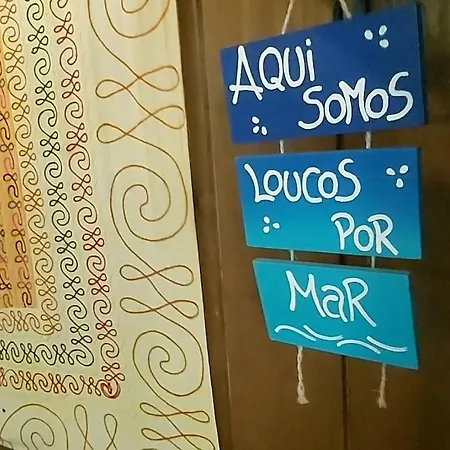 AQUi
SOMOS
LOUCOS
POR
MaR